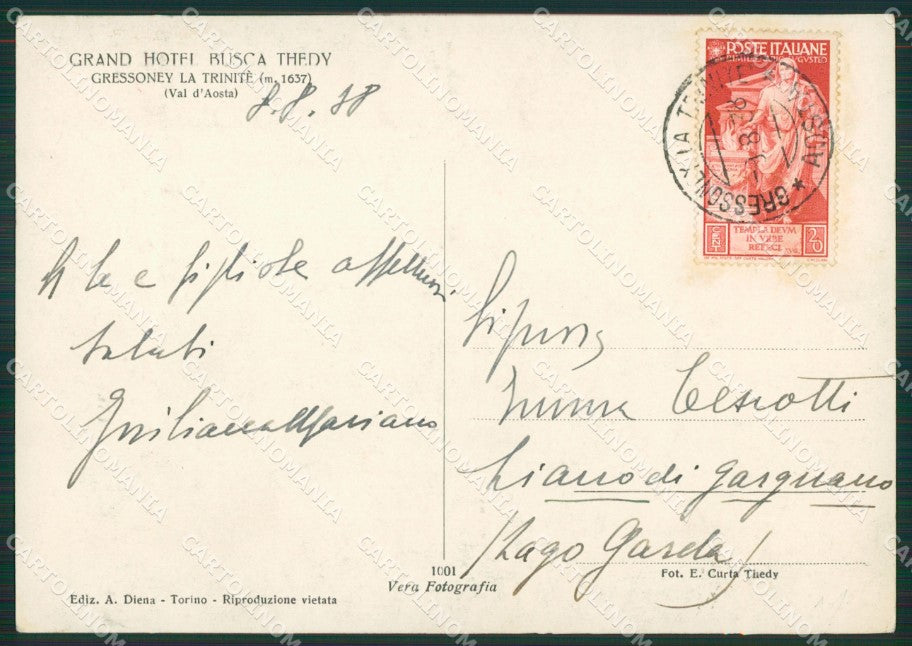 GRAND HOTEL BUSCA THEDY
GRESSONEY LA TRINITÈ (m. 1637)
(Val d'Aosta)
8.8.38
POSTE ITALIANE
CENT
TEMPLA DEVM
IN VRBE
REFECI
20
A te e figliole affettuosi
saluti
Giuliana Mariano
Signora
Cesrotti
Liano di Gargnano
(Lago Garda)
1001
Vera Fotografia
Fot. E. Curta Thedy
Ediz. A. Diena - Torino - Riproduzione vietata
CARTOLINOMANIA